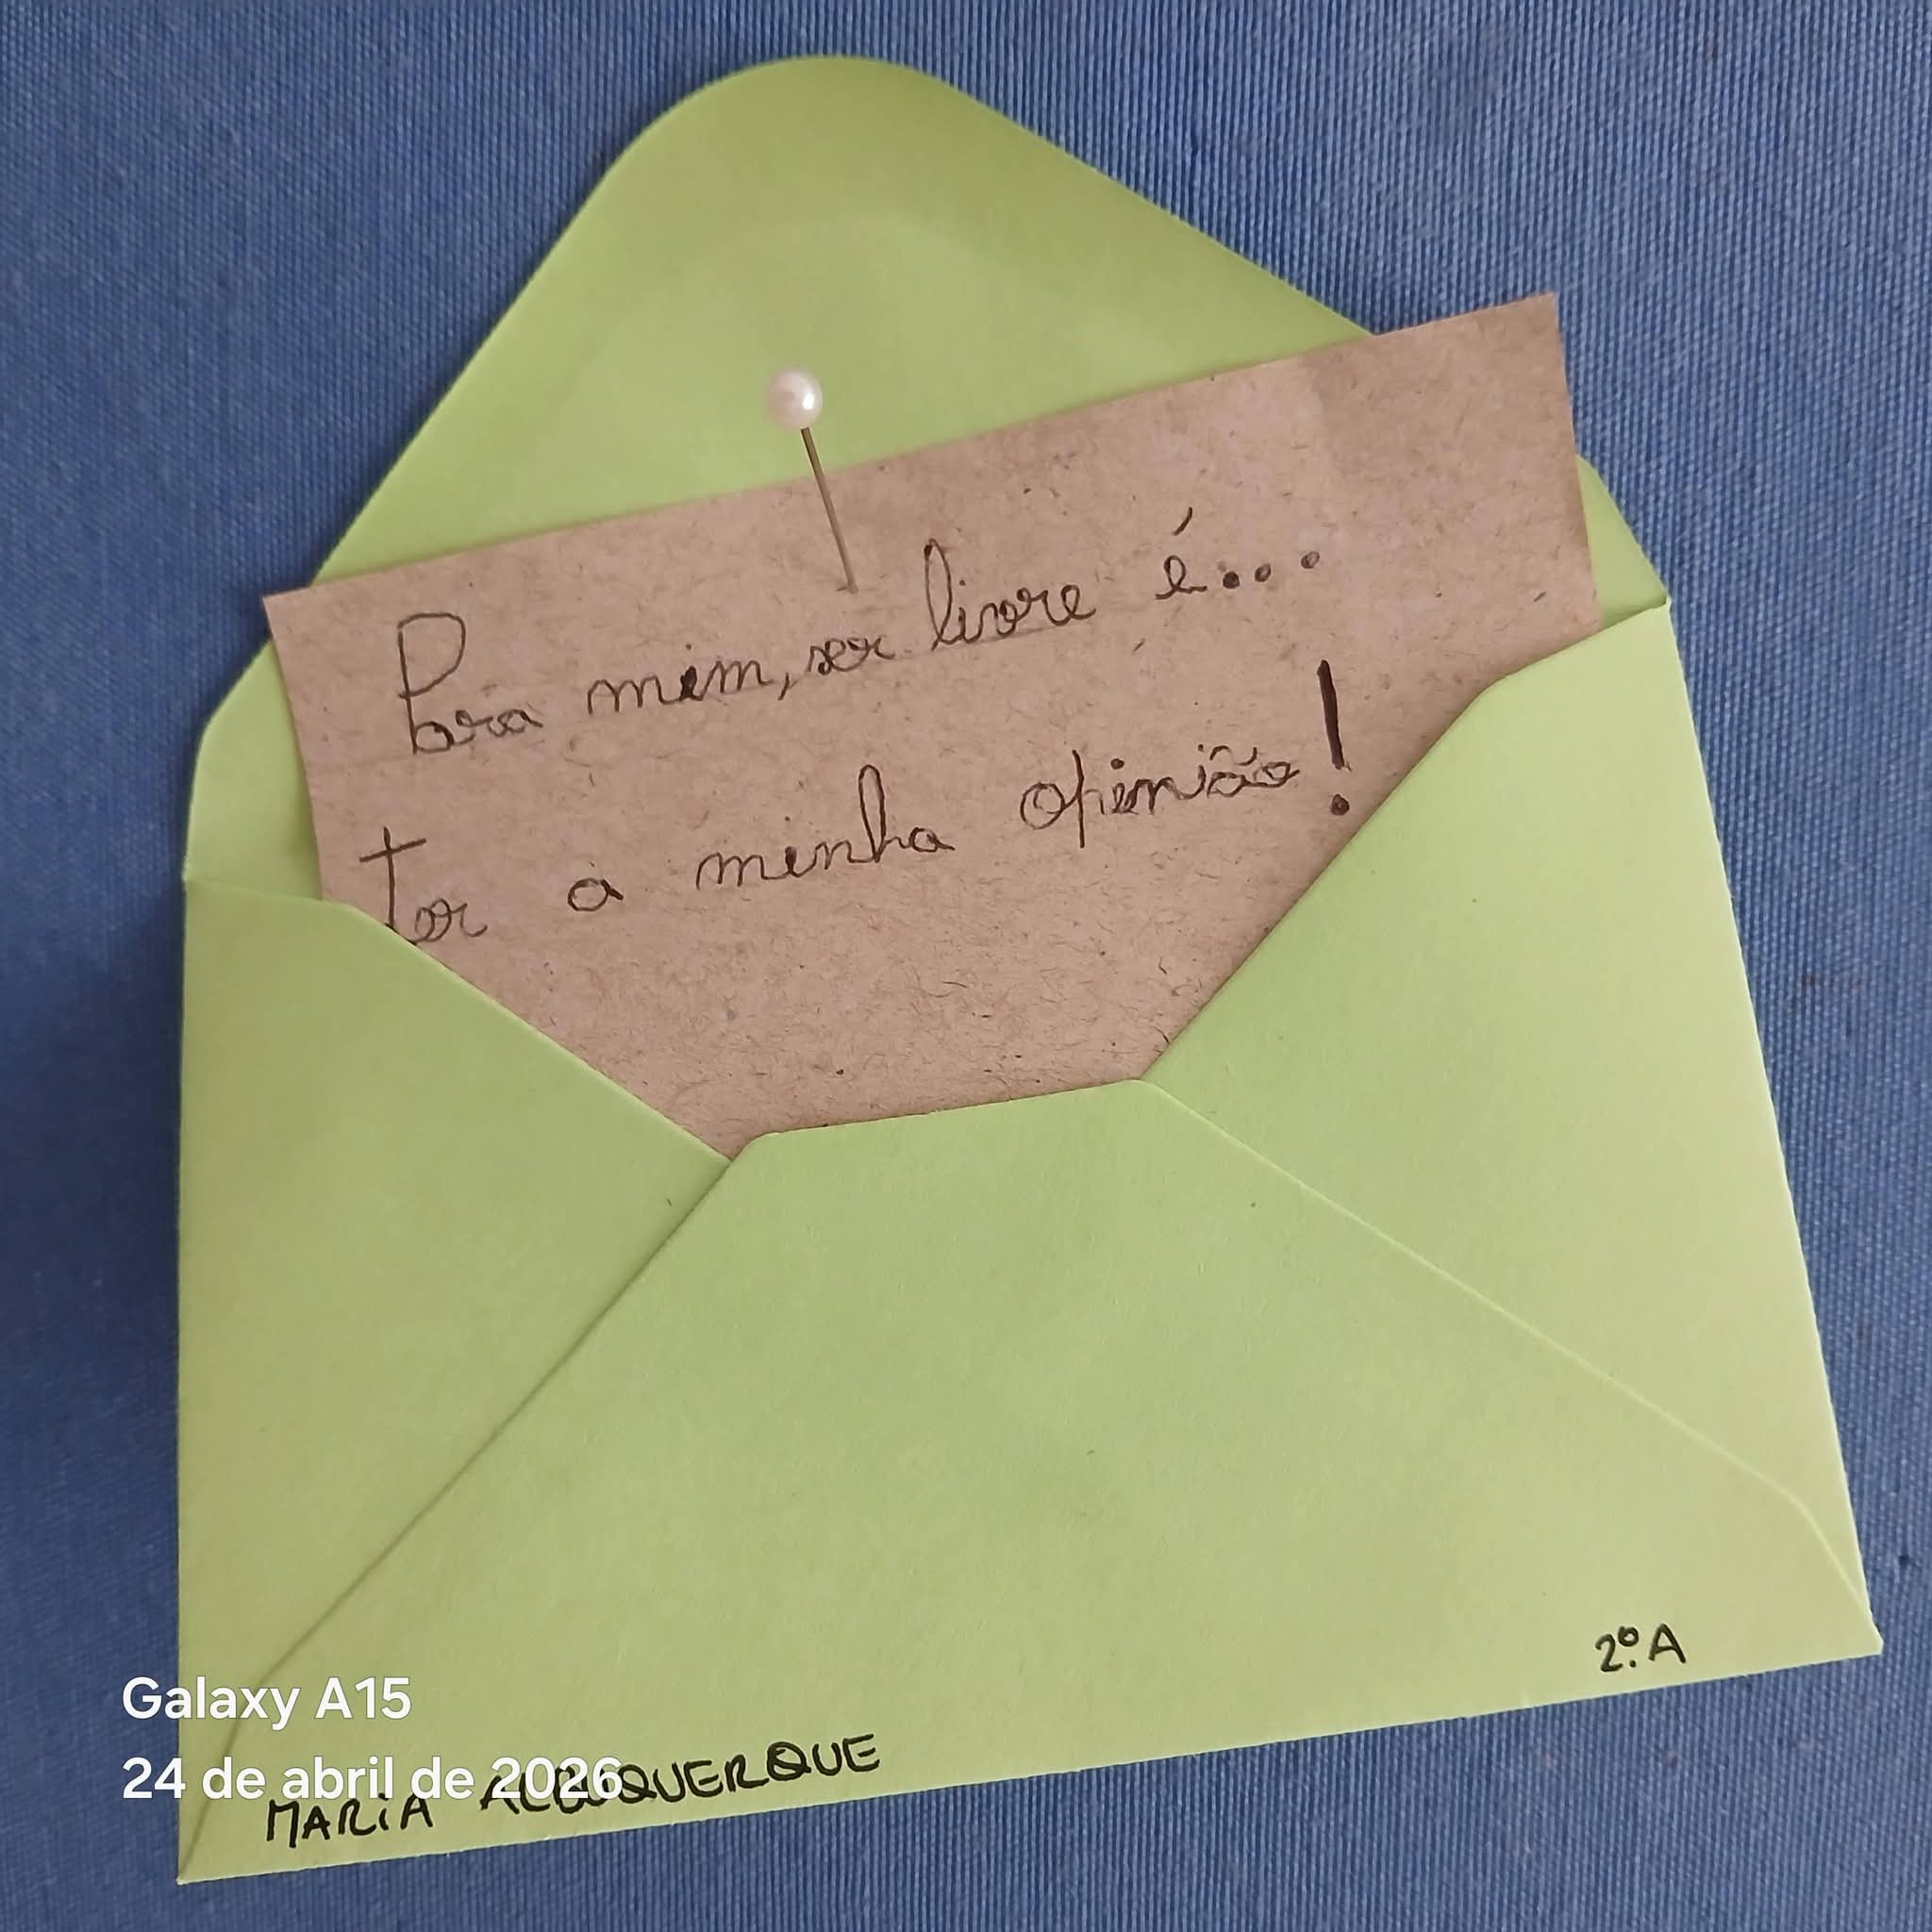 Para mim, ser livre é...
ter a minha opinião!
2º.A
Galaxy A15
24 de abril de 2026
MARIA ALBUQUERQUE